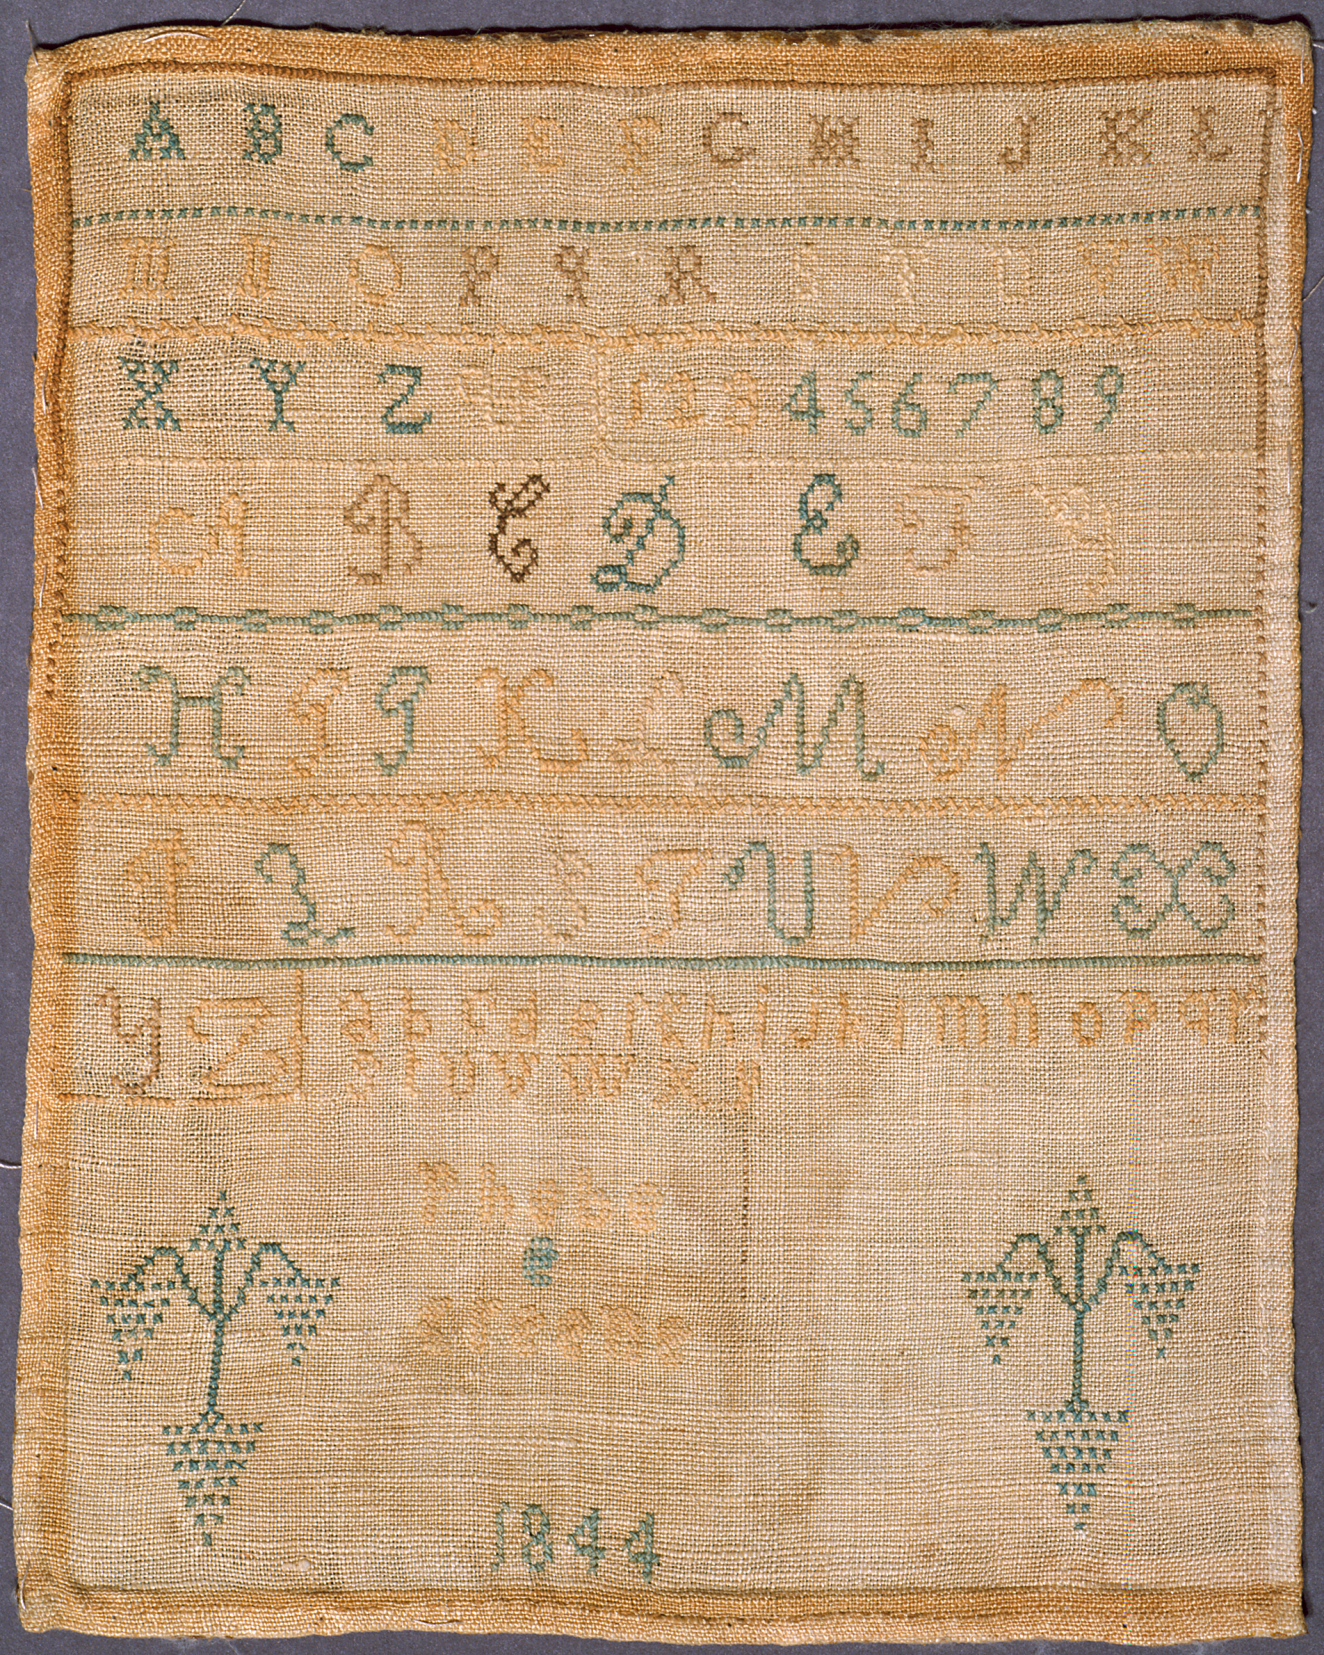 A B C D E F G H I J K L
M N O P q R S T U V W
X Y Z & 1 2 3 4 5 6 7 8 9
A B C D E F G
H I J K L M N O
P Q R S T U V W X
Y Z a b c d e f g h i j k l m n o p q r
s t u v w x y
Phebe
1844